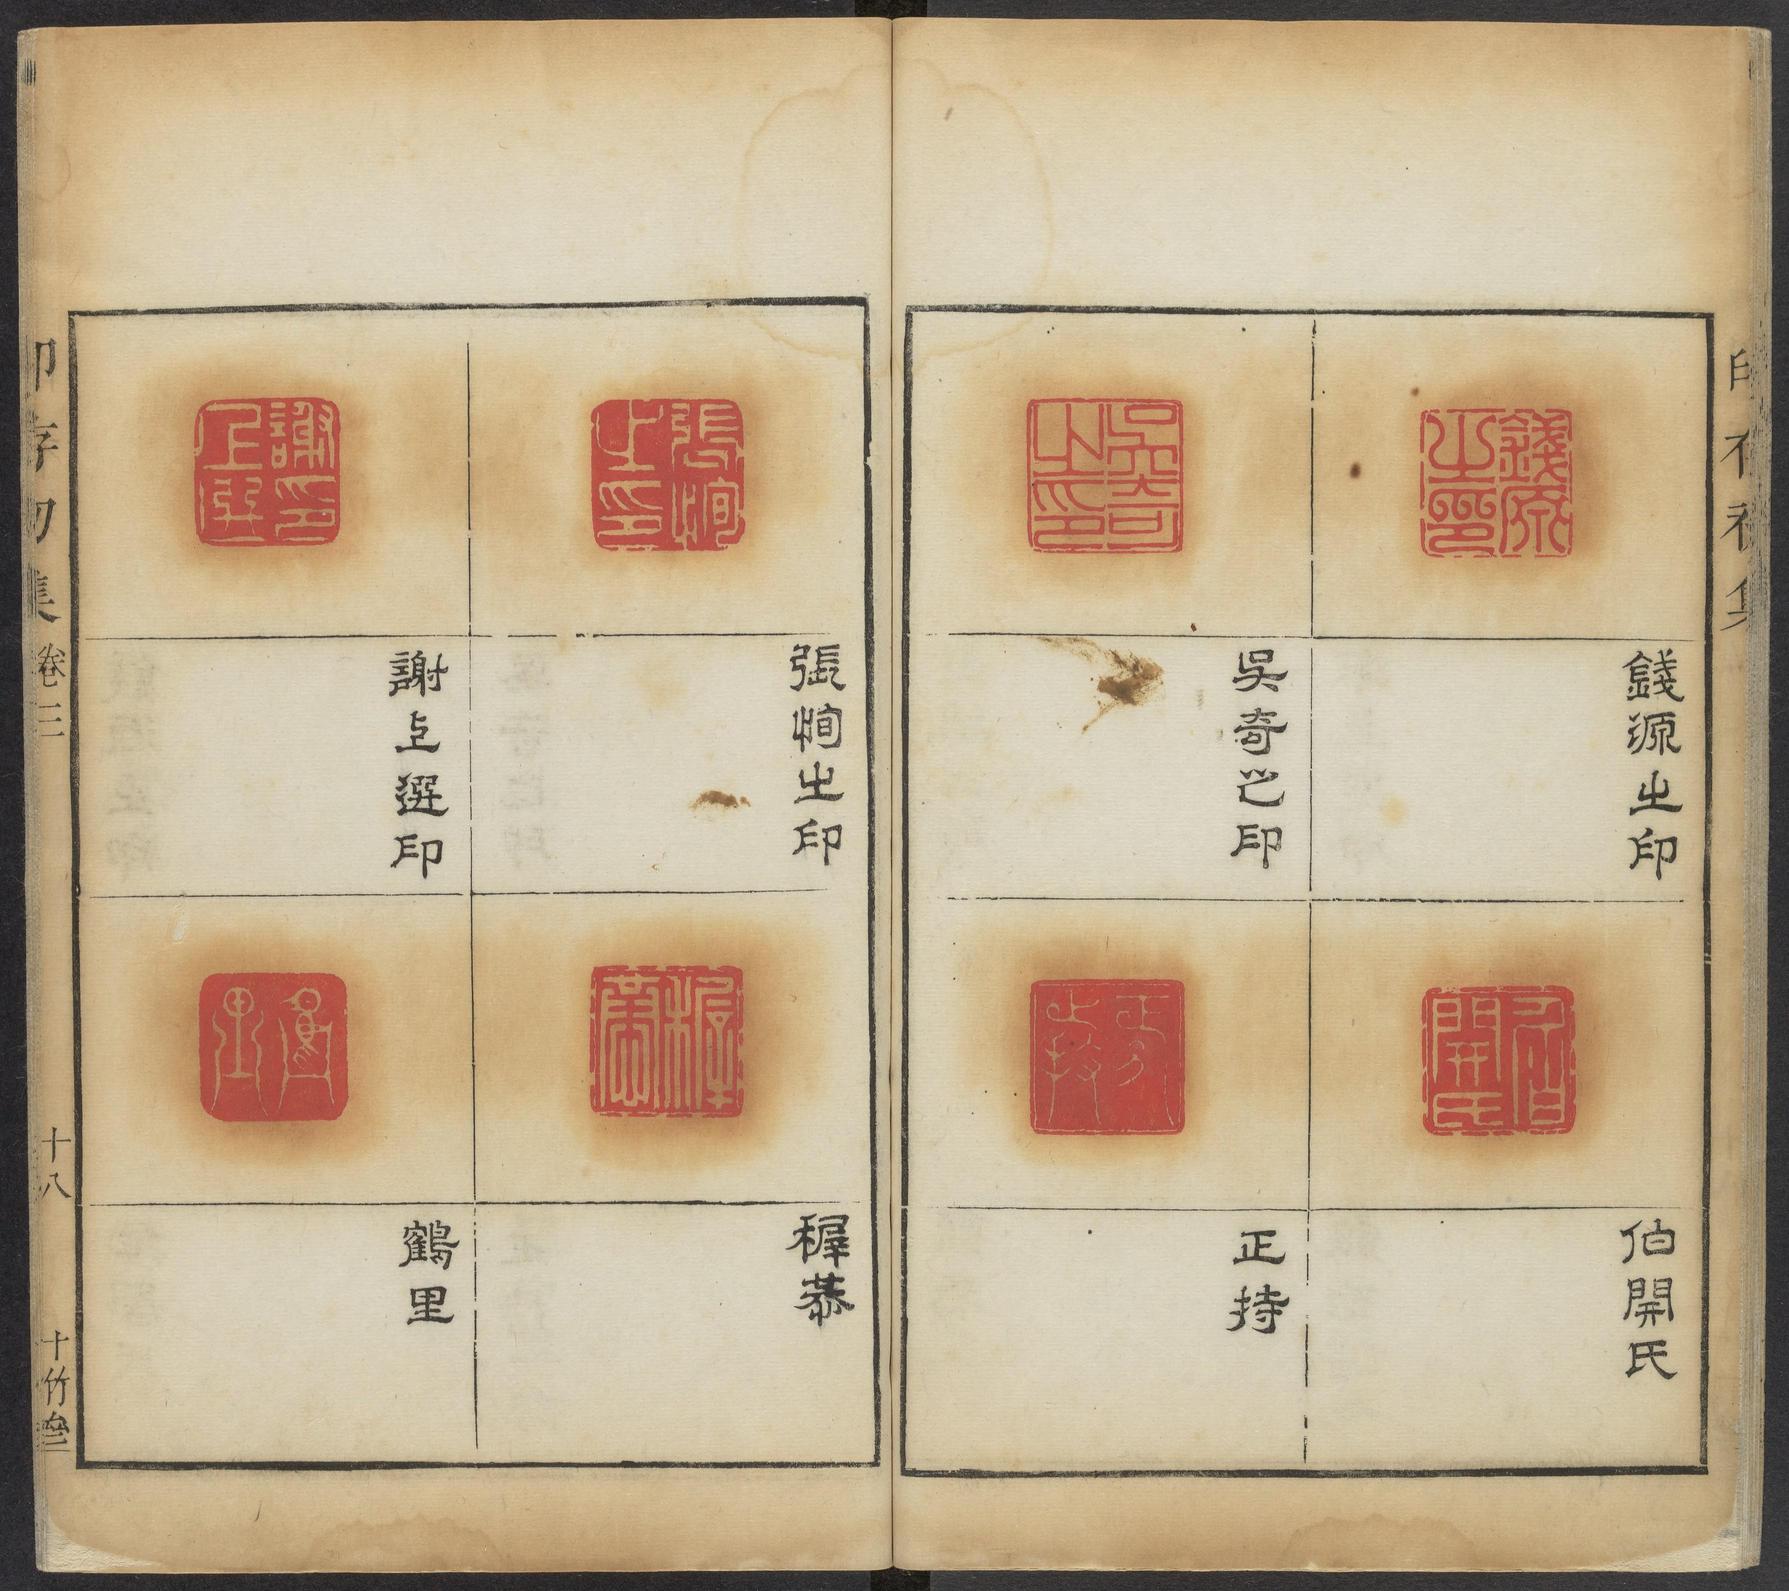 印存初集
錢源㞢印
伯開氏
吳奇㞢印
正持
張恟㞢印
穉恭
謝上選印
鶴里
印存初集
卷三
十八
十竹